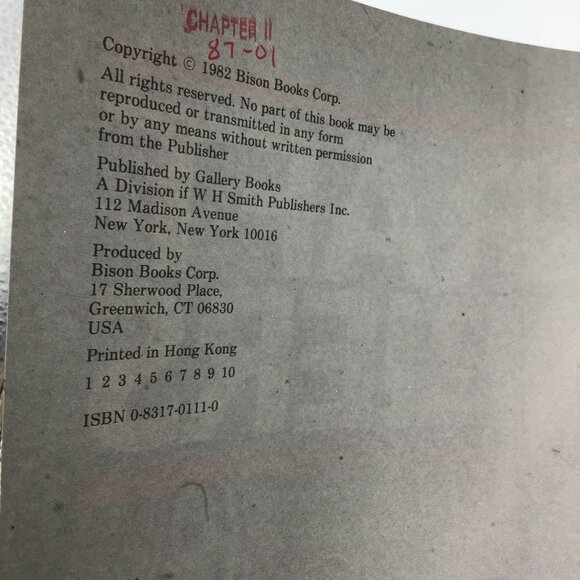 CHAPTER II
87-01
Copyright © 1982 Bison Books Corp.
All rights reserved. No part of this book may be
reproduced or transmitted in any form
or by any means without written permission
from the Publisher
Published by Gallery Books
A Division if W H Smith Publishers Inc.
112 Madison Avenue
New York, New York 10016
Produced by
Bison Books Corp.
17 Sherwood Place,
Greenwich, CT 06830
USA
Printed in Hong Kong
1 2 3 4 5 6 7 8 9 10
ISBN 0-8317-0111-0